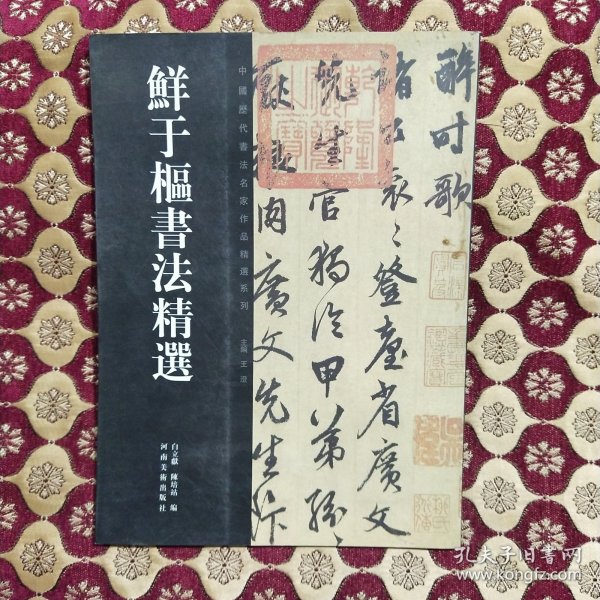 鮮于樞書法精選
中國歷代書法名家作品精選系列 主編 王澄
白立獻 陳培站 編
河南美術出版社
醉时歌
諸公衮〻登臺省廣文
先生官獨冷甲第紛〻
厭粱肉廣文先生飯
孔夫子旧书网
www.kongfz.com